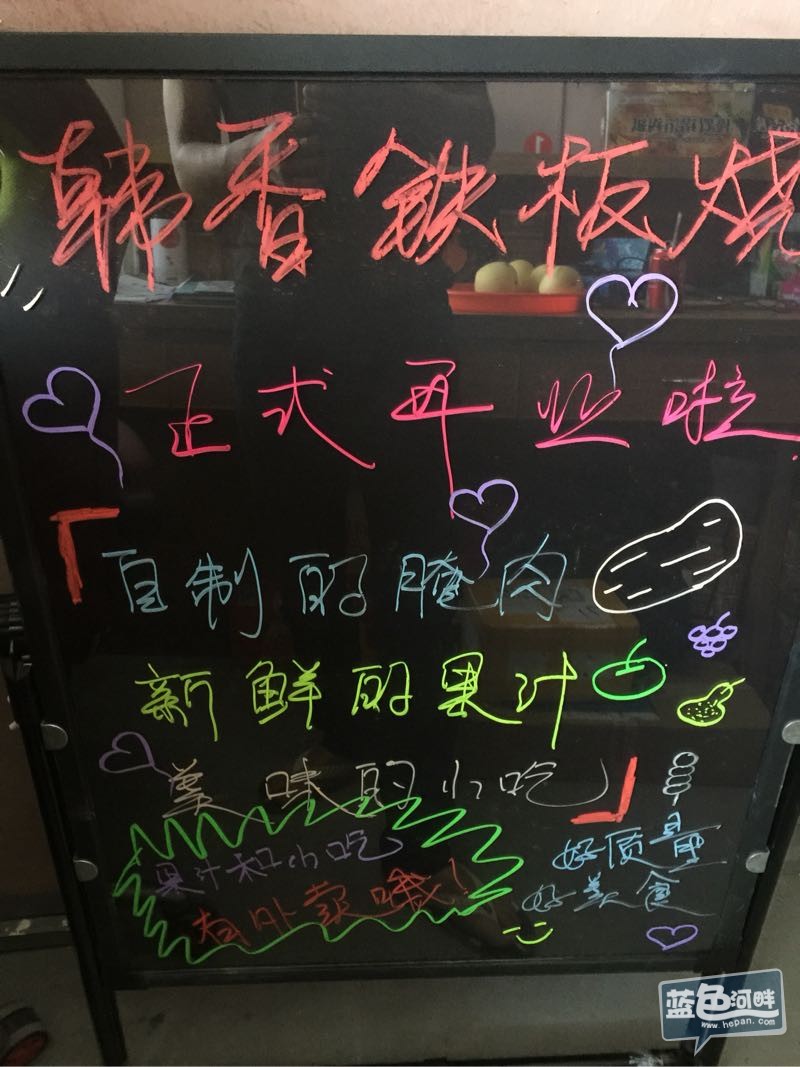 韩香铁板烧
正式开业啦
「自制的腌肉
新鲜的果汁
美味的小吃」
果汁和小吃
有外卖哦！
好质量
好美食
蓝色河畔
www.hepan.com